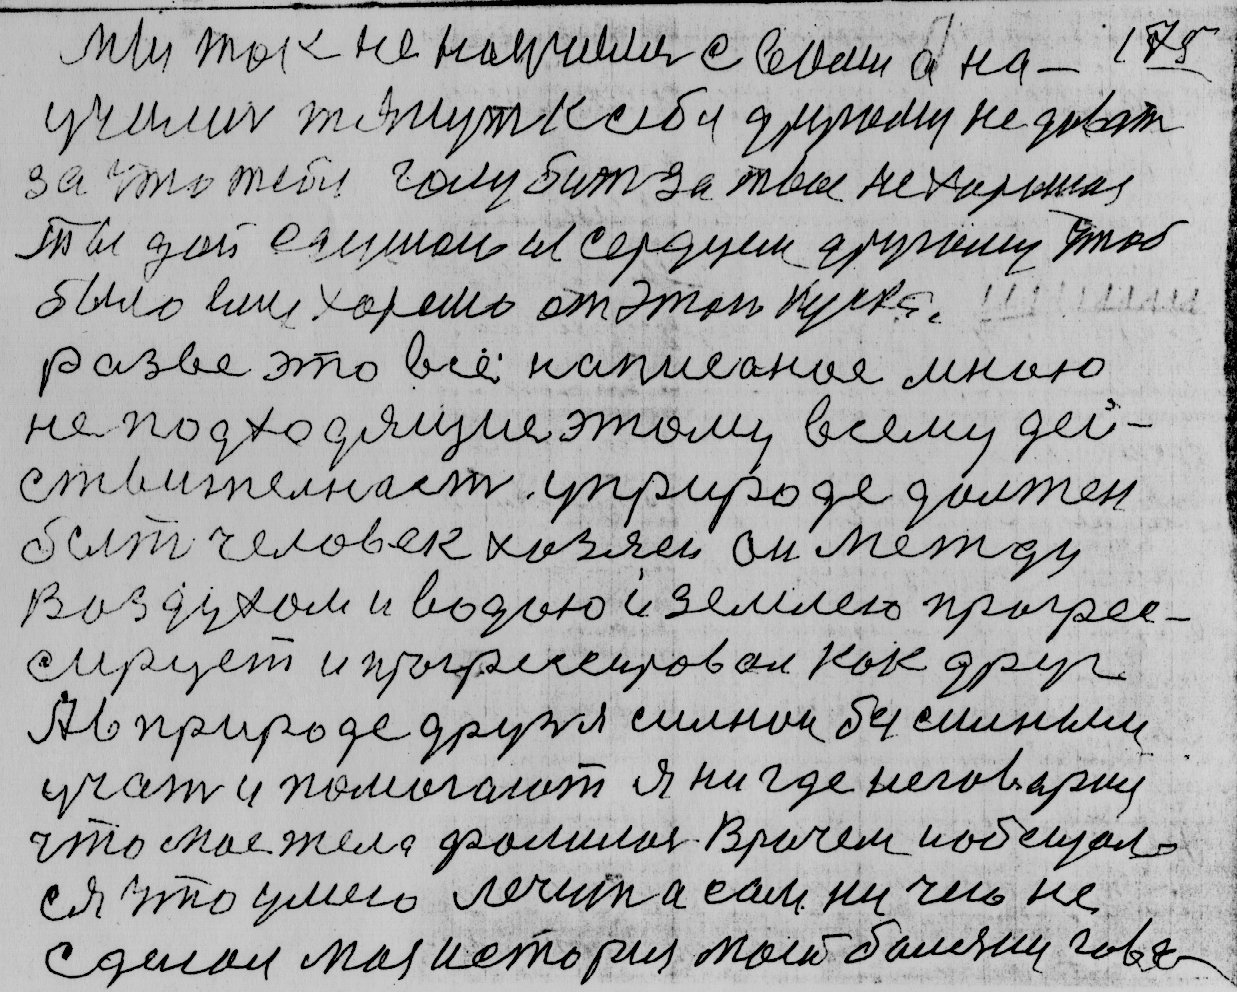 Мы так не научились с вами а на- 175
училис тянут к себя другому не дават
за что тебя голубит за твое не хорошая
Ты дай одиного и сердцем другому чтоб
было ему хорошо от этого куска.
разве это всё написаное мною
не подходящие этому всему дей-
ствителност. уприроде должен
быт человек хозяен он между
Воздухом и водою и землею прогрес-
сирует и прогрессировал как друг
А в природе друзя силнои бесилным
учат и помогают я ни где неговарил
что мое тела фамилия Врачем и обещал-
ся что умею лечит а сам ни чего не
сделал моя история моей болезни гово